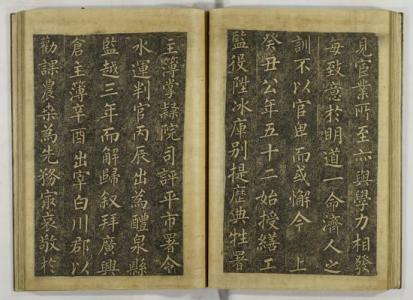 見官業所至亦與學力相發
每致意於明道一命濟人之
訓不以官卑而或懈今 上
癸丑公年五十二始授繕工
監役陞冰庫別提歷典牲署
主簿掌隷院司評平市署令
水運判官丙辰出爲醴泉縣
監越三年而解歸叙拜廣興
倉主簿辛酉出宰白川郡以
勸課農桒爲先務最哀敬於